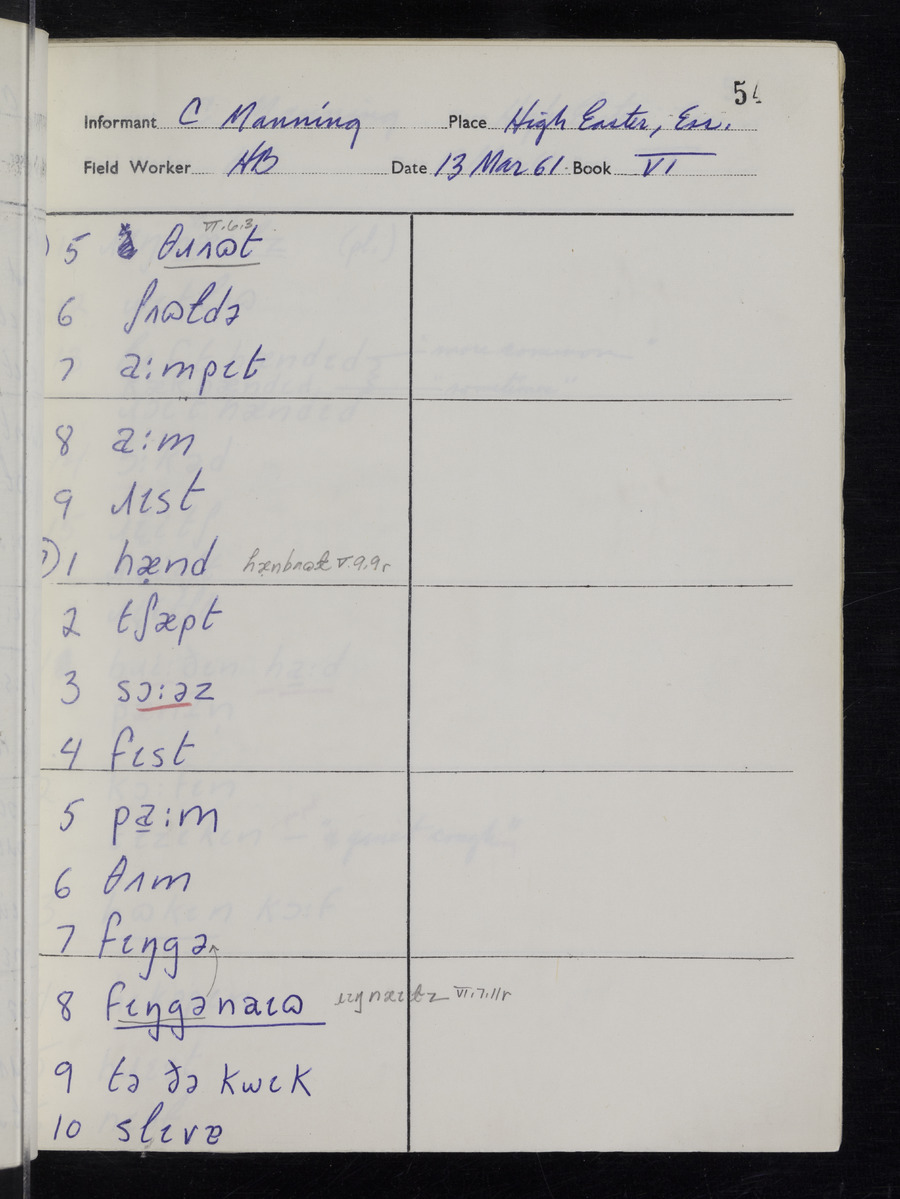 54
Informant C Manning Place High Easter, Ess.
Field Worker HB Date 13 Mar 61 Book VI
VI.6.3
5 θɹʌɷt
6 ʃʌɷɫdə
7 a:mpɪt
8 a:m
9 ɹɪst
7) 1 hænd hænbɹɷɫ V.9.9r
2 tʃæpt
3 sɔ:əz
4 fɪst
5 pa:m
6 θʌm
7 fɪŋgə
8 fɪŋgənaɪɷ VI.7.11r
9 tə ðə kwɪk
10 slɪvɐ